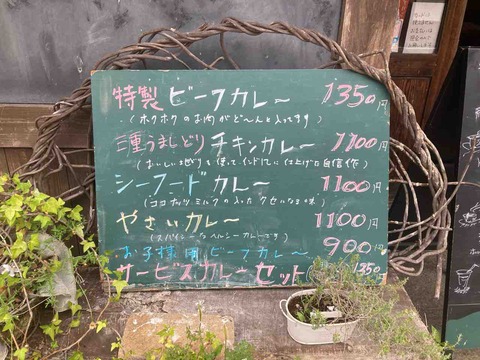 特製 ビーフカレー 1350円
(ホクホクのお肉がど〜んと入ってます)
三重うましどり チキンカレー 1100円
(おいしい とり を 使って インド 風に 仕上げた 自信作)
シーフードカレー 1100円
(ココナッツミルクの入ったクセになる味)
やさいカレー 1100円
(スパイシーなヘルシーカレーです)
お子様用ビーフカレー 900円
サービスカレーセット 1350